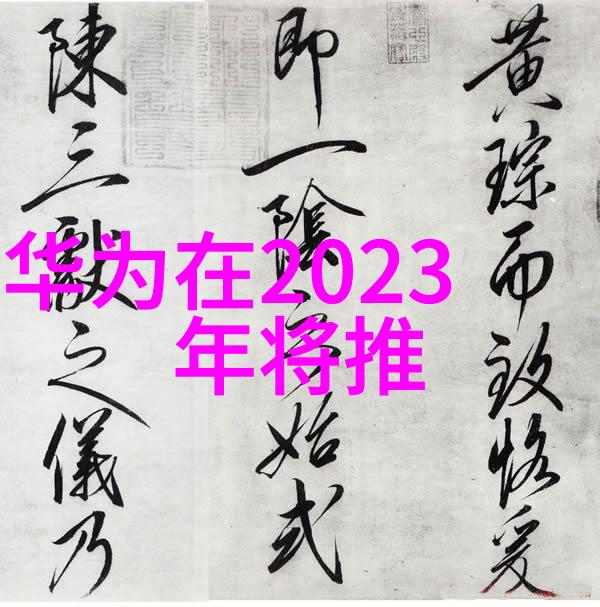 黄琮而致恪爰
即一陰之始式
陳三獻之儀乃
华为在2023
年将推